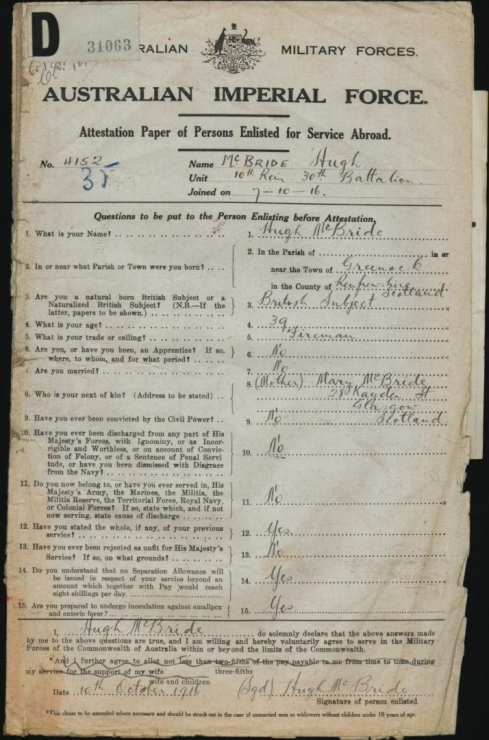 D
31063
AUSTRALIAN MILITARY FORCES.
AUSTRALIAN IMPERIAL FORCE.
Attestation Paper of Persons Enlisted for Service Abroad.
No. 4152
35
Name McBRIDE Hugh
Unit 10th Rein 30th Battalion
Joined on 7-10-16.
Questions to be put to the Person Enlisting before Attestation.
1. What is your Name? 1. Hugh McBride
2. In or near what Parish or Town were you born? 2. In the Parish of in or
near the Town of Greenock
in the County of Renfrewshire Scotland
3. Are you a natural born British Subject or a
Naturalized British Subject? (N.B.—If the
latter, papers to be shown.) 3. British Subject
4. What is your age? 4. 39
5. What is your trade or calling? 5. Fireman
6. Are you, or have you been, an Apprentice? If so,
where, to whom, and for what period? 6. No
7. Are you married? 7. No
8. Who is your next of kin? (Address to be stated) 8. (Mother) Mary McBride
28 St
Glasgow
Scotland
9. Have you ever been convicted by the Civil Power? 9. No
10. Have you ever been discharged from any part of His
Majesty's Forces, with Ignominy, or as Incor-
rigible and Worthless, or on account of Conviction
of Felony, or of a Sentence of Penal Servi
tude, or have you been dismissed with Disgrace
from the Navy? 10. No
11. Do you now belong to, or have you ever served in, His
Majesty's Army, the Marines, the Militia, the
Militia Reserve, the Territorial Force, Royal Navy,
or Colonial Forces? If so, state which, and if not
now serving, state cause of discharge 11. No
12. Have you stated the whole, if any, of your previous
service? 12. Yes
13. Have you ever been rejected as unfit for His Majesty's
Service? If so, on what grounds? 13. No
14. Do you understand that no Separation Allowance will
be issued in respect of your service beyond an
amount which together with Pay would reach
eight shillings per day 14. Yes
15. Are you prepared to undergo inoculation against smallpox
and enteric fever? 15. Yes
I, Hugh McBride do solemnly declare that the above answers made
by me to the above questions are true, and I am willing and hereby voluntarily agree to serve in the Military
Forces of the Commonwealth of Australia within or beyond the limits of the Commonwealth.
*And I further agree to allot not less than two-fifths of the pay payable to me from time to time during
three-fifths
my service for the support of my wife
wife and children
Date 10th October 1916 (Sgd) Hugh McBride
Signature of person enlisted.
*This clause to be amended where necessary and should be struck out in the case of unmarried men or widowers without children under 18 years of age.